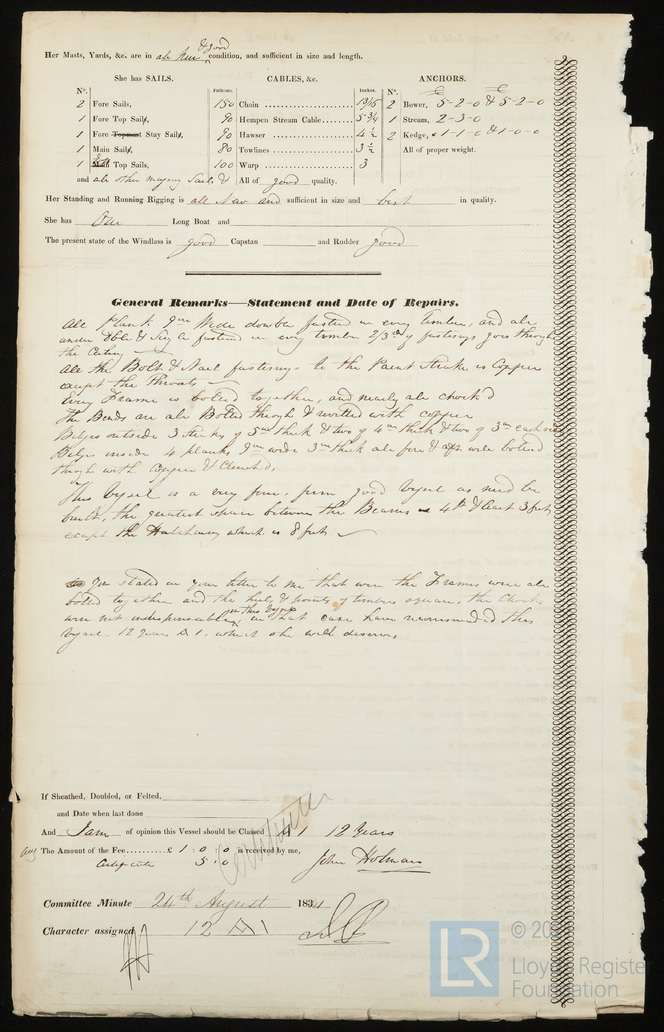 Her Masts, Yards, &c. are in all new & good condition, and sufficient in size and length.
She has SAILS.
No.
2 Fore Sails,
1 Fore Top Sails,
1 Fore Topmast Stay Sails,
1 Main Sails,
1 Top Sails,
and all other Sails &
CABLES, &c.
Fathoms. Inches.
150 Chain 1 9/16
90 Hempen Stream Cable 5 3/4
90 Hawser 4 1/2
80 Towlines 3 1/2
100 Warp 3
All of good quality.
ANCHORS.
No.
2 Bower, 5-2-0 & 5-2-0
1 Stream, 2-3-0
2 Kedge, 1-1-0 & 1-0-0
All of proper weight.
Her Standing and Running Rigging is all New and sufficient in size and best in quality.
She has One Long Boat and
The present state of the Windlass is good Capstan and Rudder good
General Remarks—Statement and Date of Repairs.
All Plank 9in Wide double fastend in every Timber, and all
under Dble & Single fastend in every timber 2/3rd of fastenings goes through
the Ceiling
All the Bolt & Nail fastenings to the Paint Strake is Copper
except the Throats
Every Frame is bolted together, and nearly all chock'd
The Bends are all Bolted through & rivitted with copper
Bilges outside 3 strakes of 5in thick & two of 4in thick & two of 3in each side
Bilge inside 4 planks 9in wide 3in thick all fore & aft well bolted
through with Copper & Clench'd,
This Vessel is a very fine, firm good Vessel as need be
built, the greatest space between the Beams is 4ft & least 3 feet
except the Hatchway which is 8 feet
You stated in your letter to me that were the Frames were all
bolted together and the heels & points of timbers square, the Chocks
were not indispensable, in this Vessel in that case have recommended this
Vessel 12 Years A 1. which she well deserves
If Sheathed, Doubled, or Felted,
and Date when last done
And I am of opinion this Vessel should be Classed A 1 12 Years
The Amount of the Fee £ 1 : 0 : 0 is received by me,
Certificate 5 : 0
John Holman
Committee Minute 24th August 1834
Character assigned 12 A 1
LR
Lloyd's Register
Foundation